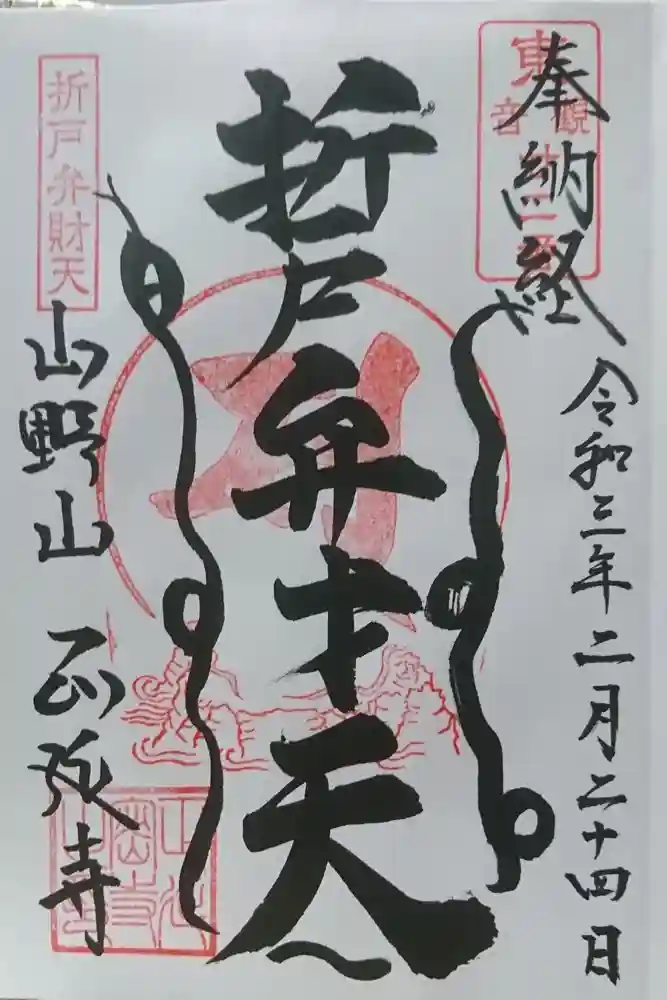 奉納経
令和三年二月二十四日
折戸弁才天
折戸弁財天
山野山 正法寺